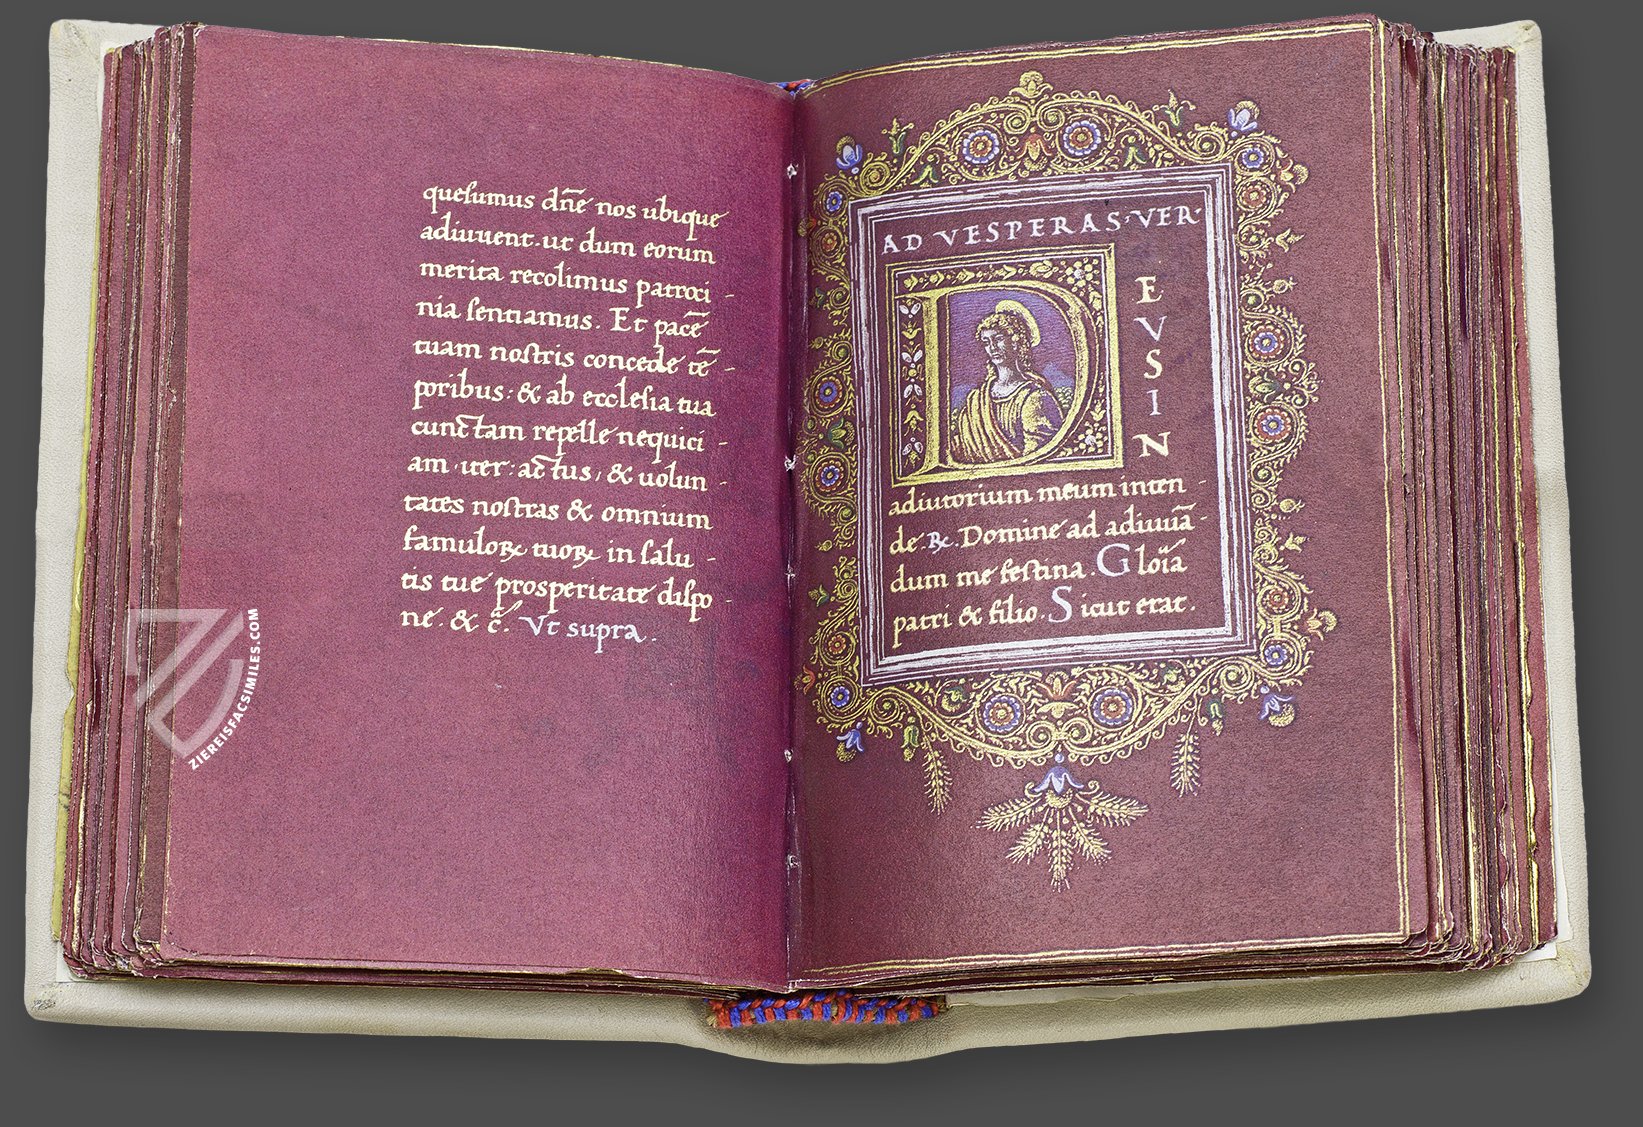 queſumus dn̄e nos ubique
adiuuent. ut dum eorum
merita recolimus patroci-
nia ſentiamus. Et pacē
tuam noſtris concede tē-
poribus: & ab eccleſia tua
cunctam repelle nequici-
am. iter: actus, & uolun-
tates noſtras & omnium
famuloꝝ tuoꝝ in ſalu-
tis tue prosperitate diſpo-
ne. & c̄. Vt supra.
AD VESPERAS·VER·
DEVSIN
adiutorium meum inten-
de. ℞. Domine ad adiuuā-
dum me feſtina. Gloīa
patri & filio. Sicut erat.
ZIEREISFACSIMILES.COM